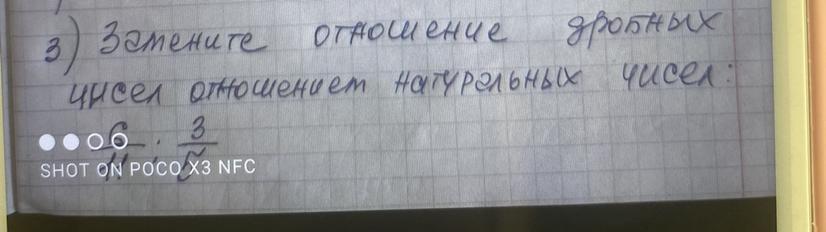 3) Замените отношение дробных
чисел отношением натуральных чисел:
6/11 : 3/5
SHOT ON POCO X3 NFC